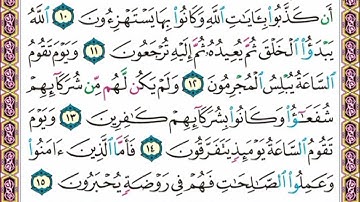 أَن كَذَّبُوا۟ بِـَٔايَـٰتِ ٱللَّهِ وَكَانُوا۟ بِهَا يَسْتَهْزِءُونَ ١٠ ٱللَّهُ
يَبْدَؤُا۟ ٱلْخَلْقَ ثُمَّ يُعِيدُهُۥ ثُمَّ إِلَيْهِ تُرْجَعُونَ ١١ وَيَوْمَ تَقُومُ
ٱلسَّاعَةُ يُبْلِسُ ٱلْمُجْرِمُونَ ١٢ وَلَمْ يَكُن لَّهُم مِّن شُرَكَآئِهِمْ
شُفَعَـٰٓؤُا۟ وَكَانُوا۟ بِشُرَكَآئِهِمْ كَـٰفِرِينَ ١٣ وَيَوْمَ
تَقُومُ ٱلسَّاعَةُ يَوْمَئِذٍ يَتَفَرَّقُونَ ١٤ فَأَمَّا ٱلَّذِينَ ءَامَنُوا۟
وَعَمِلُوا۟ ٱلصَّـٰلِحَـٰتِ فَهُمْ فِى رَوْضَةٍ يُحْبَرُونَ ١٥